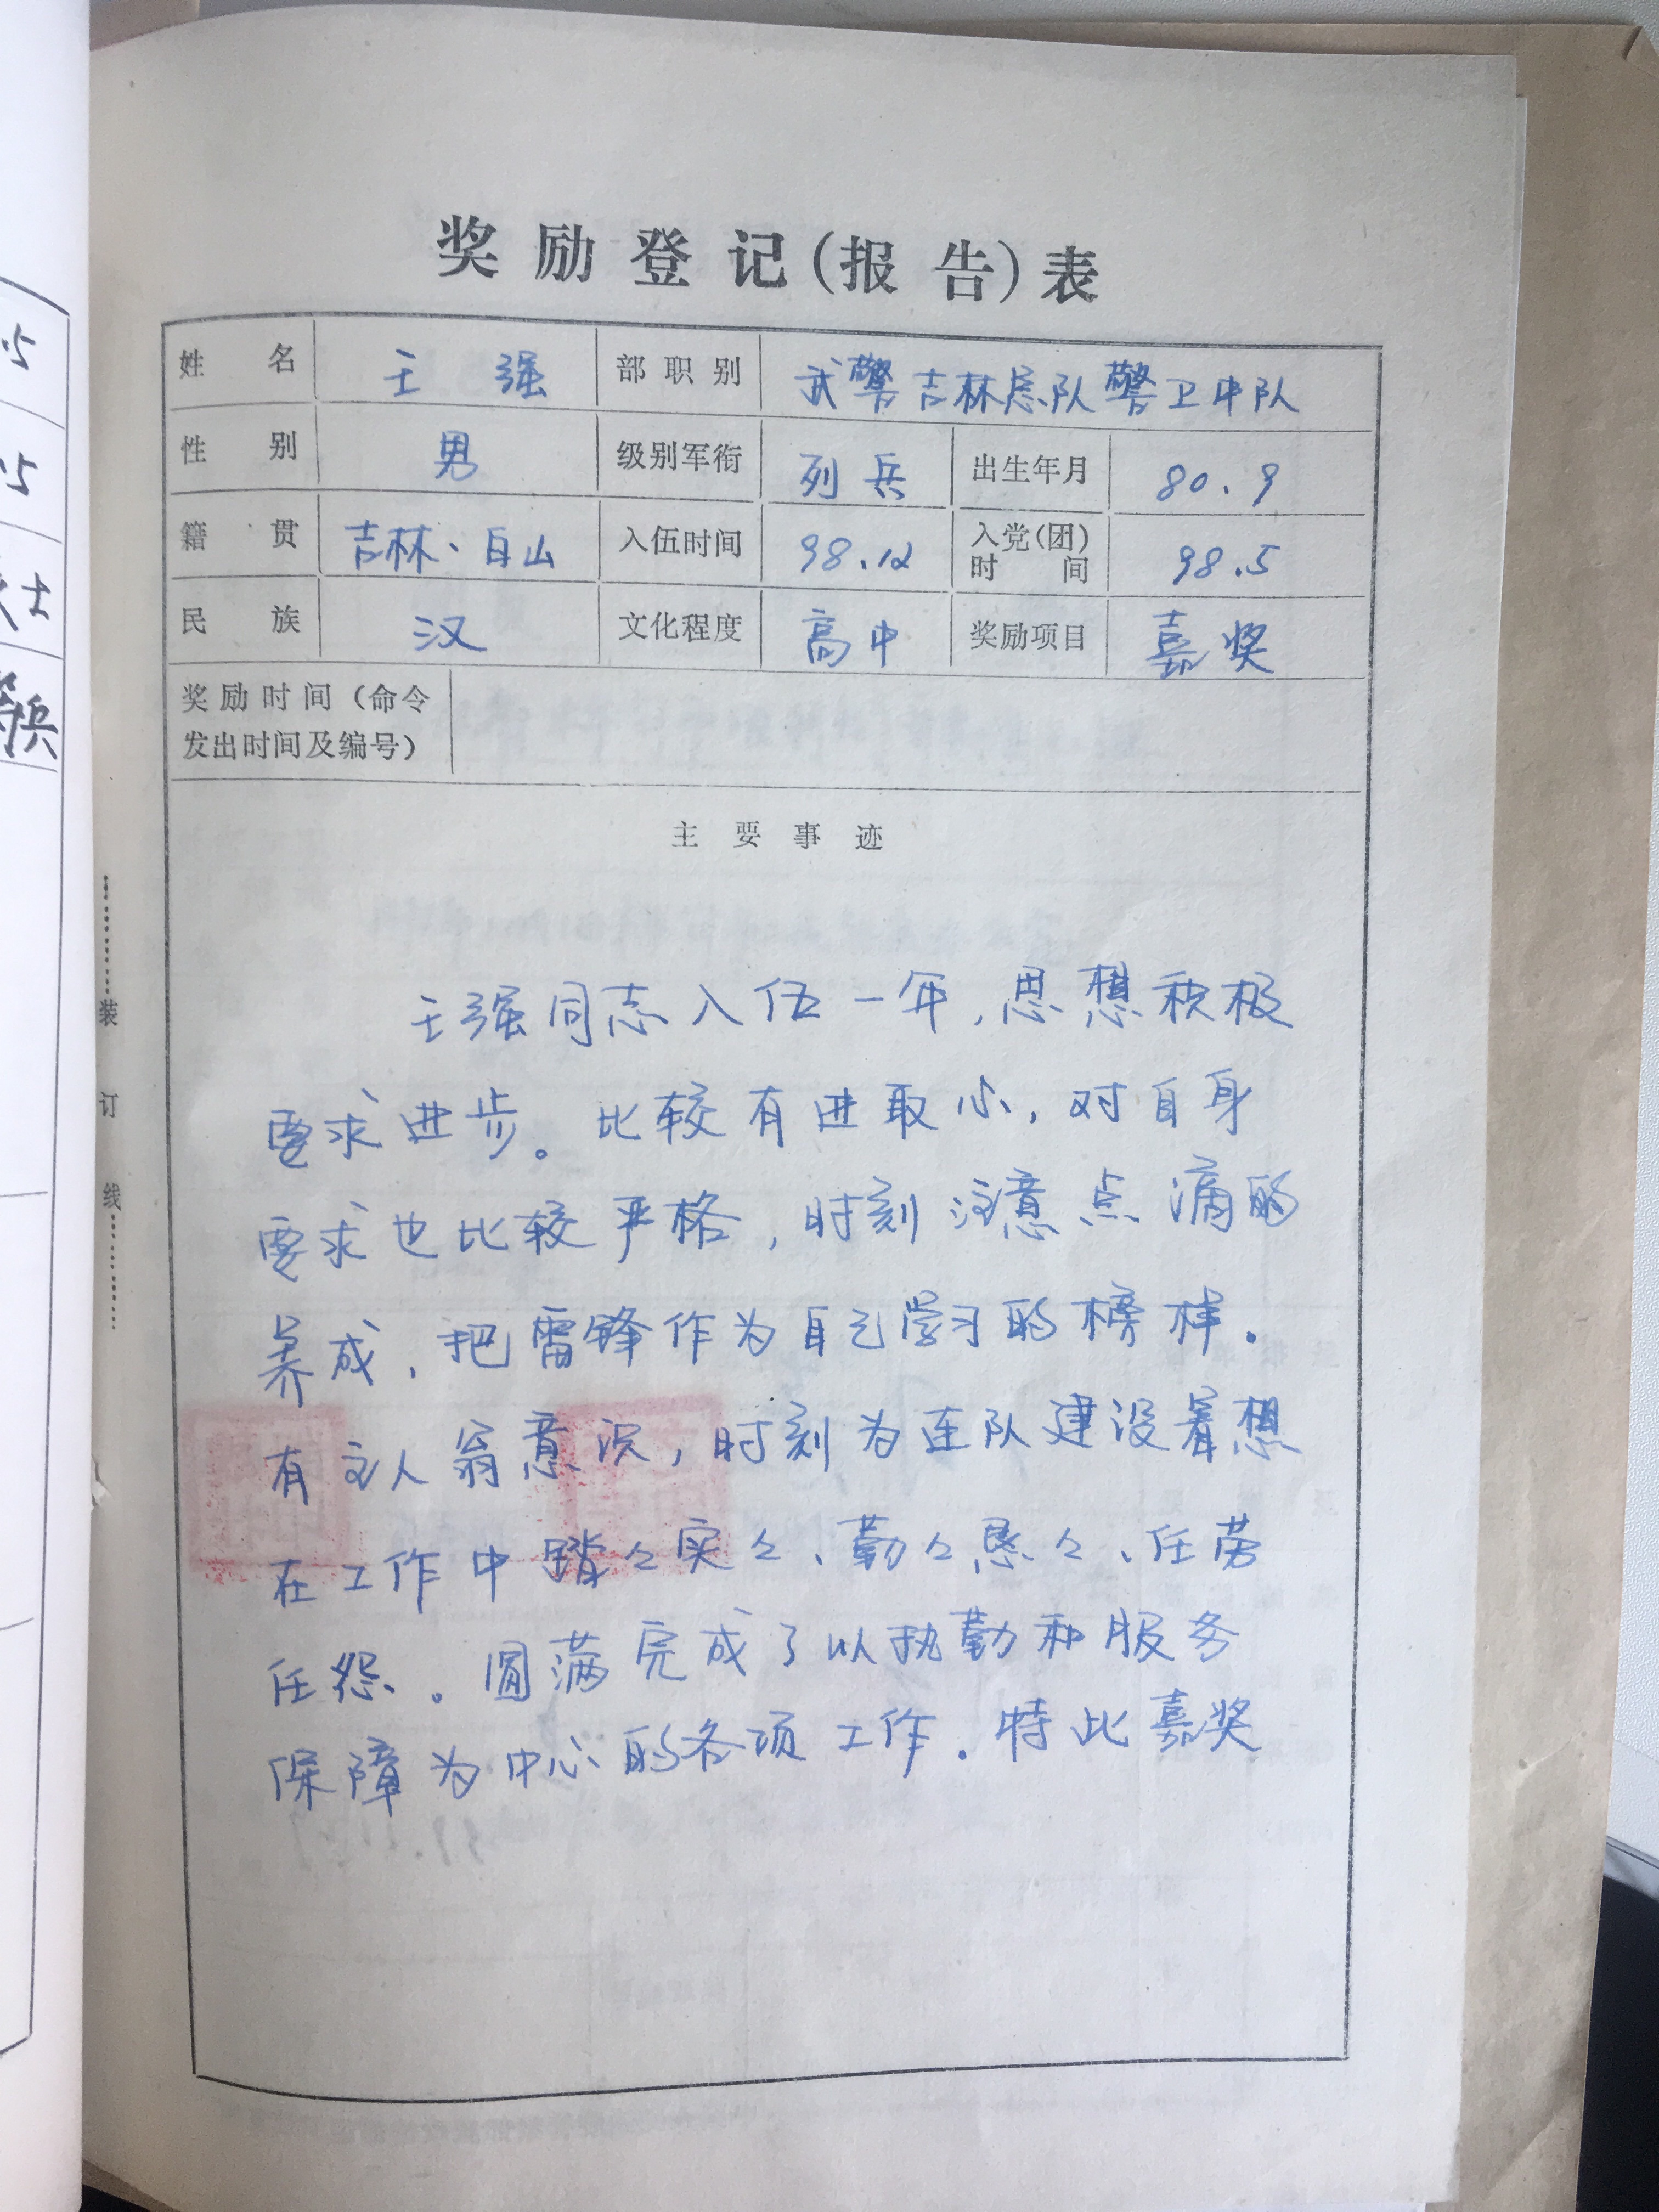 奖励登记(报告)表
姓名 王强 部职别 武警吉林总队警卫中队
性别 男 级别军衔 列兵 出生年月 80.9
籍贯 吉林、白山 入伍时间 98.12 入党(团)时间 98.5
民族 汉 文化程度 高中 奖励项目 嘉奖
奖励时间(命令
发出时间及编号)
主要事迹
王强同志入伍一年,思想积极
要求进步。比较有进取心,对自身
要求也比较严格,时刻注意点滴的
养成,把雷锋作为自己学习的榜样.
有主人翁意识,时刻为连队建设着想
在工作中踏々实々、勤々恳々、任劳
任怨。圆满完成了以执勤和服务
保障为中心的各项工作.特此嘉奖
装订线